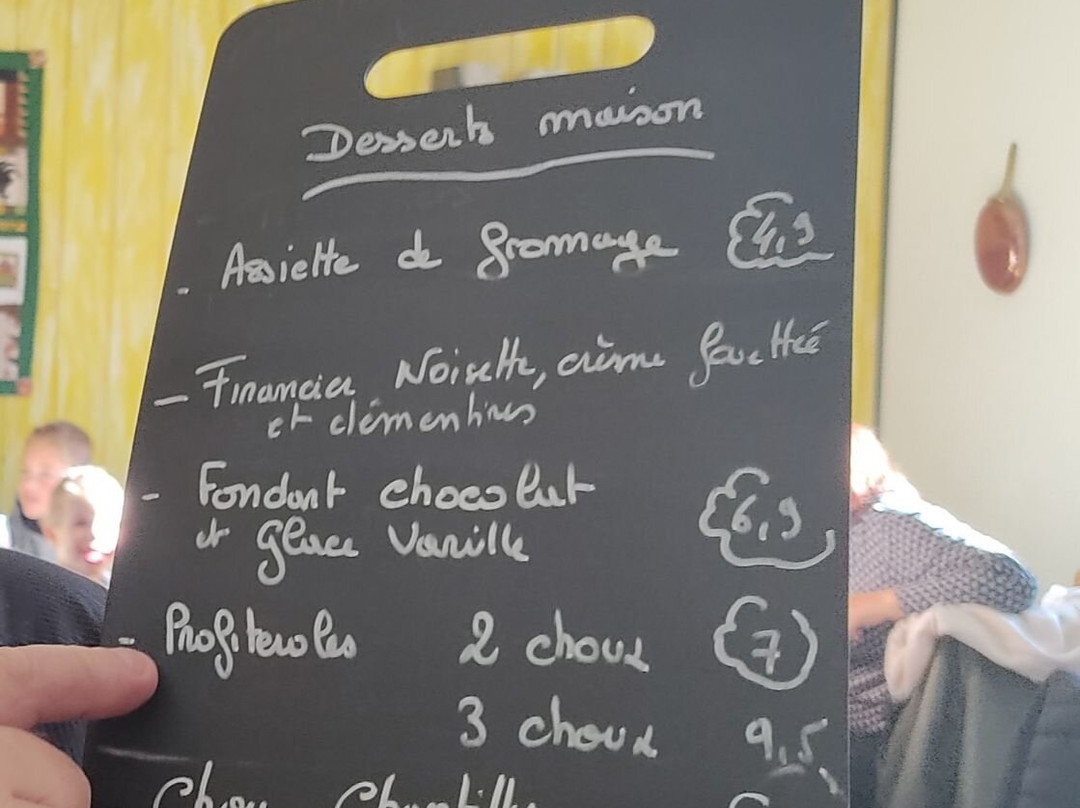 Desserts maison
- Assiette de fromage 4,9
- Financier Noisette, crème fouettée
et clémentines
- Fondant chocolat 6,9
et glace Vanille
- Profiteroles 2 choux 7
3 choux 9,5
Chou Chantilly